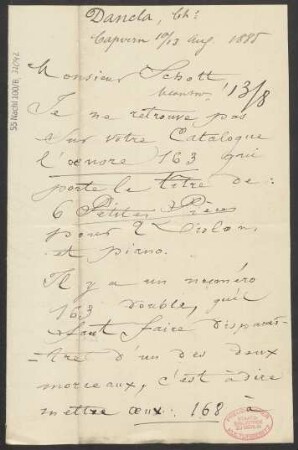 Dancla, Ch:
Capvern 10/13 Aug. 1885
Monsieur Schott
13/8
Je ne retrouve pas
sur votre Catalogue
l'oeuvre 163 qui
porte le titre de:
6 Petites Pièces
pour 2 violons
et piano.
Il y a un numéro
163 double, qu'il
faut faire disparaî-
-tre d'un des deux
morceaux, c'est à dire
mettre œuv: 168 à
55 Nachl 100/B,